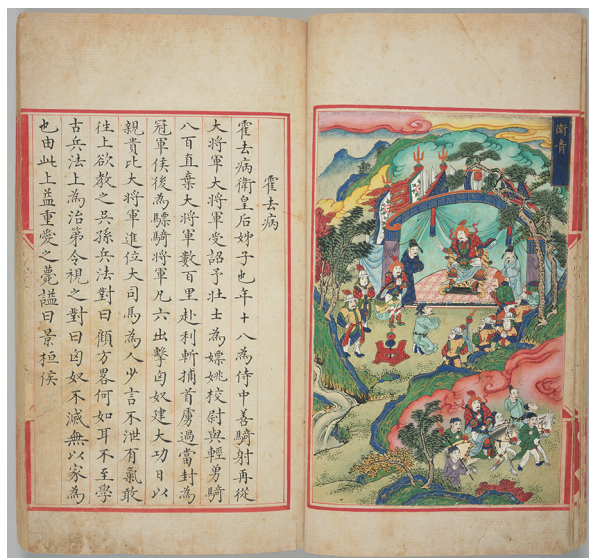 衛青
霍去病
霍去病衛皇后姊子也年十八為侍中善騎射再從
大將軍大將軍受詔予壯士為嫖姚校尉與輕勇騎
八百直棄大將軍數百里赴利斬捕首虜過當封為
冠軍侯後為驃騎將軍凡六出擊匈奴建大功日以
親貴比大將軍進位大司馬為人少言不泄有氣敢
往上欲教之吳孫兵法對曰顧方畧何如耳不至學
古兵法上為治第令視之對曰匈奴不滅無以家為
也由此上益重愛之薨諡曰景桓侯